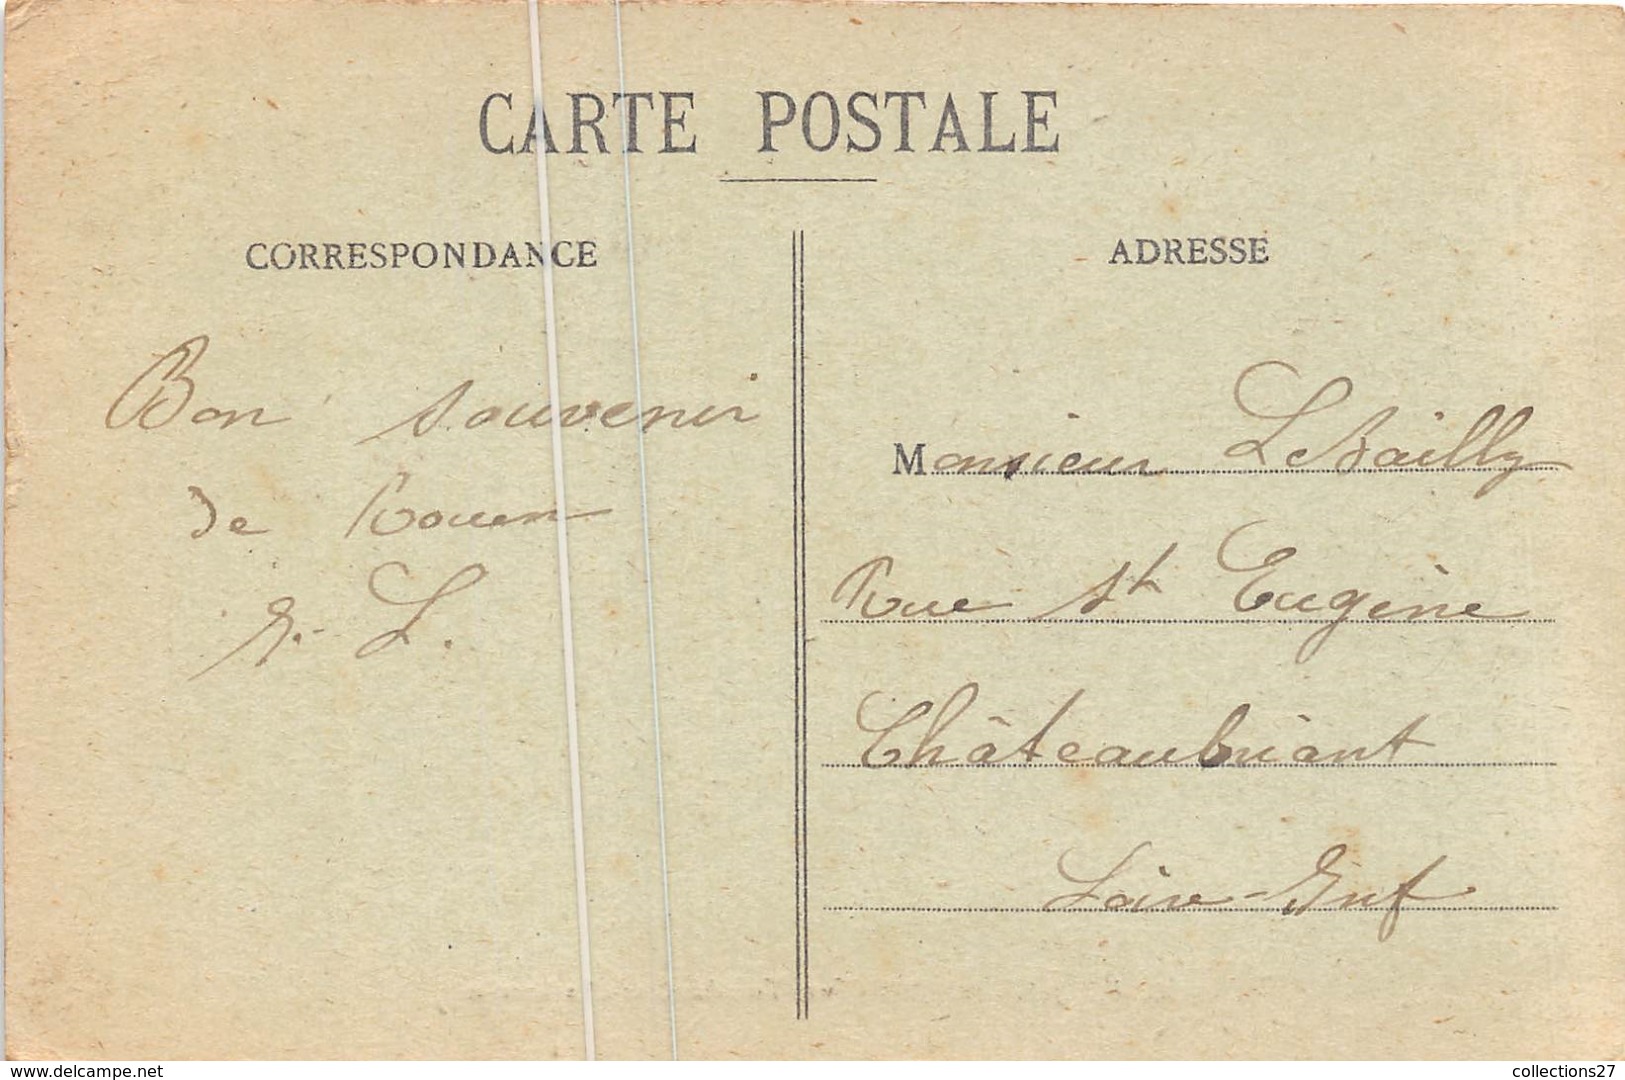 CARTE POSTALE
CORRESPONDANCE
Bon souvenir
de Rouen
L.
ADRESSE
Monsieur LeBailly
Rue St Eugène
Châteaubriant
Loire-Inf
www.delcampe.net
collections27